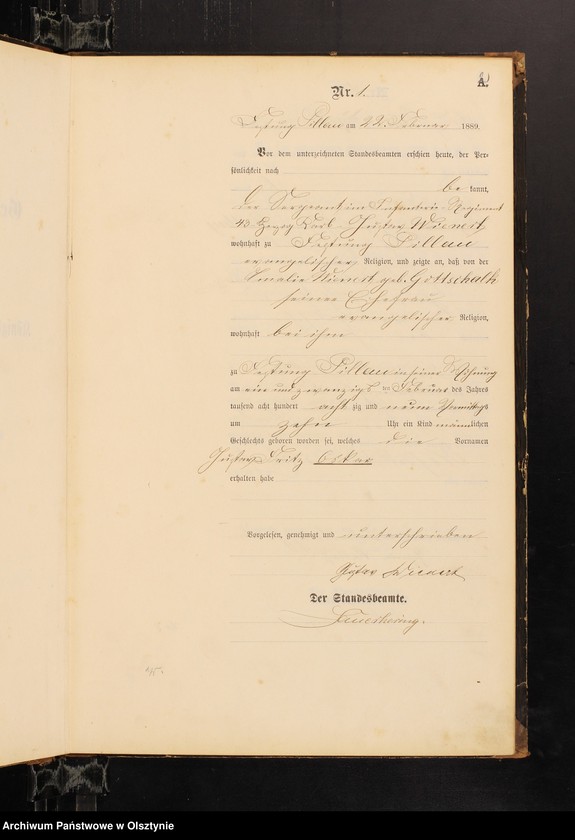 A.
Nr. 1.
Festung Pillau am 22. Februar 1889.
Vor dem unterzeichneten Standesbeamten erschien heute, der Per-
sönlichkeit nach
be kannt,
der Sergeant im Infanterie Regiment
43 Herzog Carl Gustav Wienert
wohnhaft zu Festung Pillau
evangelischer Religion, und zeigte an, daß von der
Amalie Wienert geb. Gottschalk
seiner Ehefrau
evangelischer Religion,
wohnhaft bei ihm
zu Festung Pillau in seiner Wohnung
am ein und zwanzigst ten Februar des Jahres
tausend acht hundert acht zig und neun Vormittags
um zehn Uhr ein Kind männlichen
Geschlechts geboren worden sei, welches die Vornamen
Gustav Fritz Oskar
erhalten habe
Vorgelesen, genehmigt und unterschrieben
Gustav Wienert
Der Standesbeamte.
Archiwum Państwowe w Olsztynie